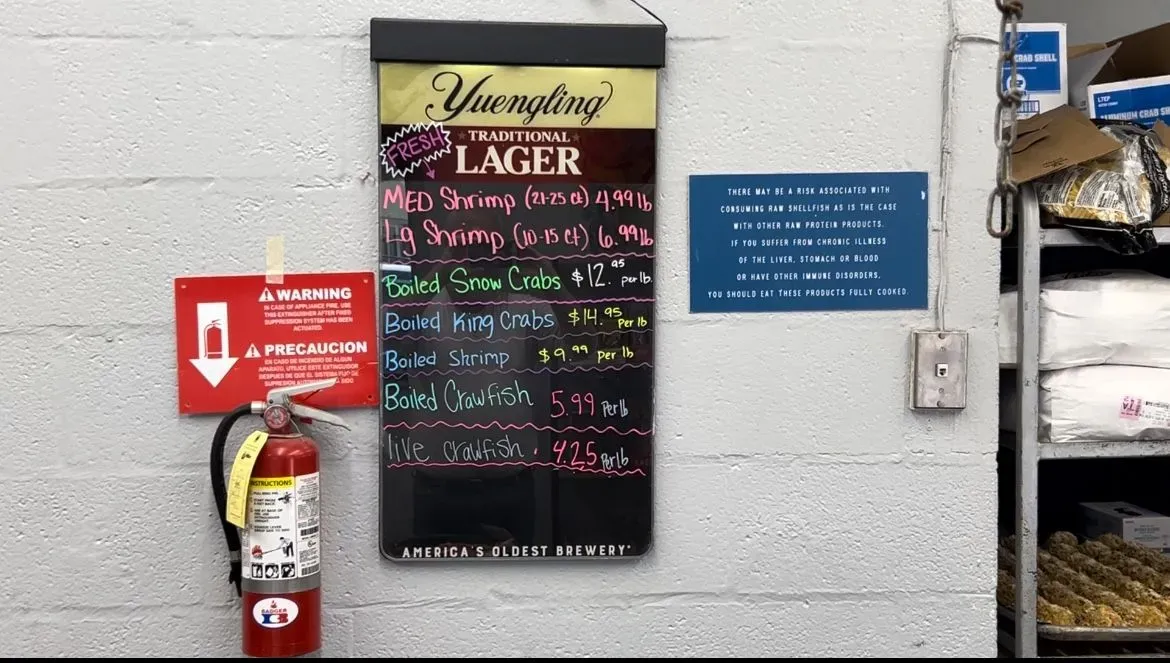 Yuengling
TRADITIONAL
FRESH
LAGER
MED Shrimp (21-25 ct) 4.99 lb
Lg Shrimp (10-15 ct) 6.99 lb
Boiled Snow Crabs $12.95 per lb.
Boiled King Crabs $14.95 Per lb
Boiled Shrimp $9.99 per lb
Boiled Crawfish 5.99 Per lb
live crawfish. 4.25 Per lb
AMERICA'S OLDEST BREWERY
WARNING
IN CASE OF APPLIANCE FIRE, USE
THIS EXTINGUISHER AFTER FIXED
SUPPRESSION SYSTEM HAS BEEN
ACTUATED.
PRECAUCION
EN CASO DE INCENDIO DE ALGUN
APARATO, UTILICE ESTE EXTINGUIDOR
DESPUES DE QUE EL SISTEMA FIJO DE
INSTRUCTIONS
BADGER
THERE MAY BE A RISK ASSOCIATED WITH
CONSUMING RAW SHELLFISH AS IS THE CASE
WITH OTHER RAW PROTEIN PRODUCTS.
IF YOU SUFFER FROM CHRONIC ILLNESS
OF THE LIVER, STOMACH OR BLOOD
OR HAVE OTHER IMMUNE DISORDERS,
YOU SHOULD EAT THESE PRODUCTS FULLY COOKED.
CRAB SHELL
ALUMINUM CRAB